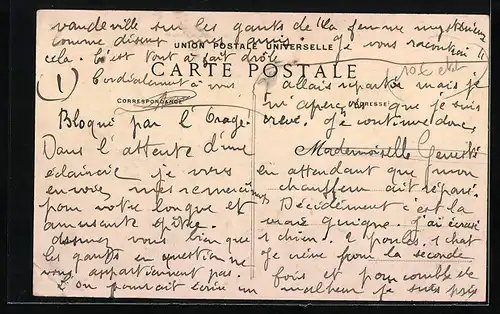 vaudeville sur les gants de "la femme mystérieuse"
comme disent mes amis. Je vous raconterai
cela. C'est tout à fait drôle
UNION POSTALE UNIVERSELLE
CARTE POSTALE
Cordialement à vous
CORRESPONDANCE
ADRESSE
1
Bloqué par l'Orage.
Dans l'attente d'une
éclaircie je vous
envoie mes remerciements
pour votre longue et
amusante épître.
vous bien que
les gants en question ne
vous appartiennent pas.
on pourrait écrire un
J'allais repartir mais je
m'aperçois que je suis
crevé. Je continue donc,
Mademoiselle
en attendant que mon
chauffeur ait réparé.
Décidément c'est la
vraie guigne. J'ai écrasé
1 chien. 2 poules. 1 chat
Je crève pour la seconde
fois et pour comble de
malheur je suis pris